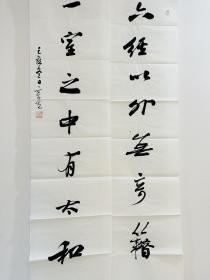 六经以外無奇籍
一室之中有太和